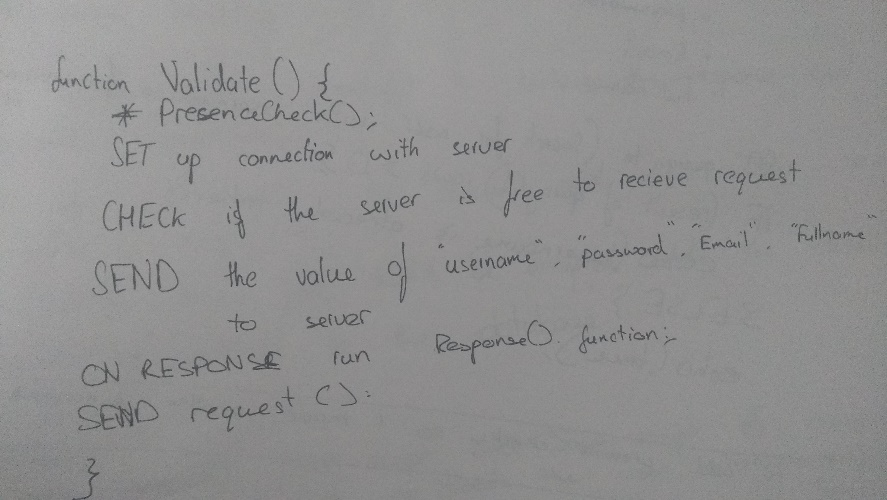 function Validate () {
* PresenceCheck();
SET up connection with server
CHECK if the server is free to recieve request
SEND the value of "username", "password", "Email", "Fullname"
to server
ON RESPONSE run Response() function;
SEND request ();
}